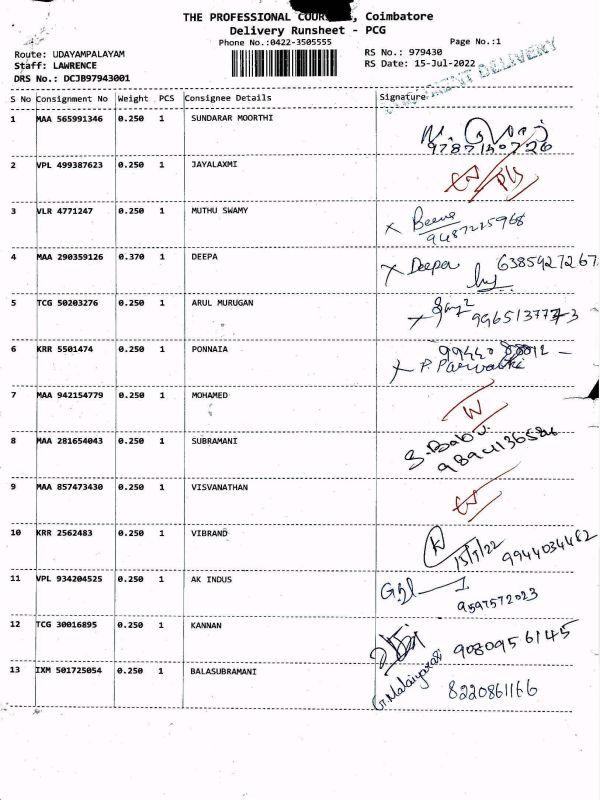 THE PROFESSIONAL COUR , Coimbatore
Delivery Runsheet - PCG
Phone No.:0422-3505555
Page No.:1
Route: UDAYAMPALAYAM
RS No.: 979430
Staff: LAWRENCE
RS Date: 15-Jul-2022
DRS No.: DCJB97943001
DELIVERY
S No Consignment No Weight PCS Consignee Details Signature
1 MAA 565991346 0.250 1 SUNDARAR MOORTHI
9787150726
2 VPL 499387623 0.250 1 JAYALAXMI
3 VLR 4771247 0.250 1 MUTHU SWAMY
Beena
9487215968
4 MAA 290359126 0.370 1 DEEPA
Deepa 6385927267
5 TCG 50203276 0.250 1 ARUL MURUGAN
6 KRR 5501474 0.250 1 PONNAIA
P. Parvathi
7 MAA 942154779 0.250 1 MOHAMED
8 MAA 281654043 0.250 1 SUBRAMANI
S. Babu
9894136584
9 MAA 857473430 0.250 1 VISVANATHAN
10 KRR 2562483 0.250 1 VIBRAND
15/7/22 9944034482
11 VPL 934204525 0.250 1 AK INDUS
9597572023
12 TCG 30016895 0.250 1 KANNAN
9080956145
13 IXM 501725054 0.250 1 BALASUBRAMANI
8220861166